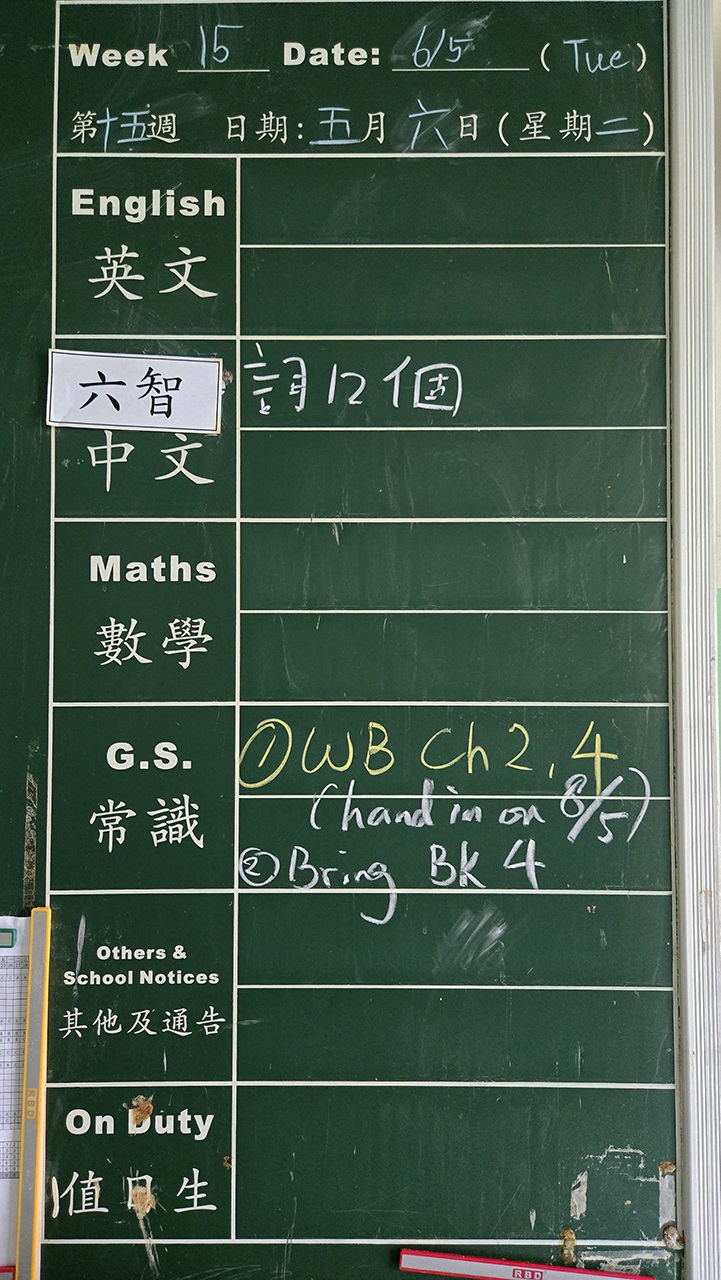 Week 15 Date: 6/5 (Tue)
第十五週 日期:五月六日(星期二)
English
英文
六智
詞12個
中文
Maths
數學
G.S.
常識
①WB Ch2,4
(hand in on 8/5)
②Bring BK 4
Others &
School Notices
其他及通告
On Duty
值日生
RBD
RBD